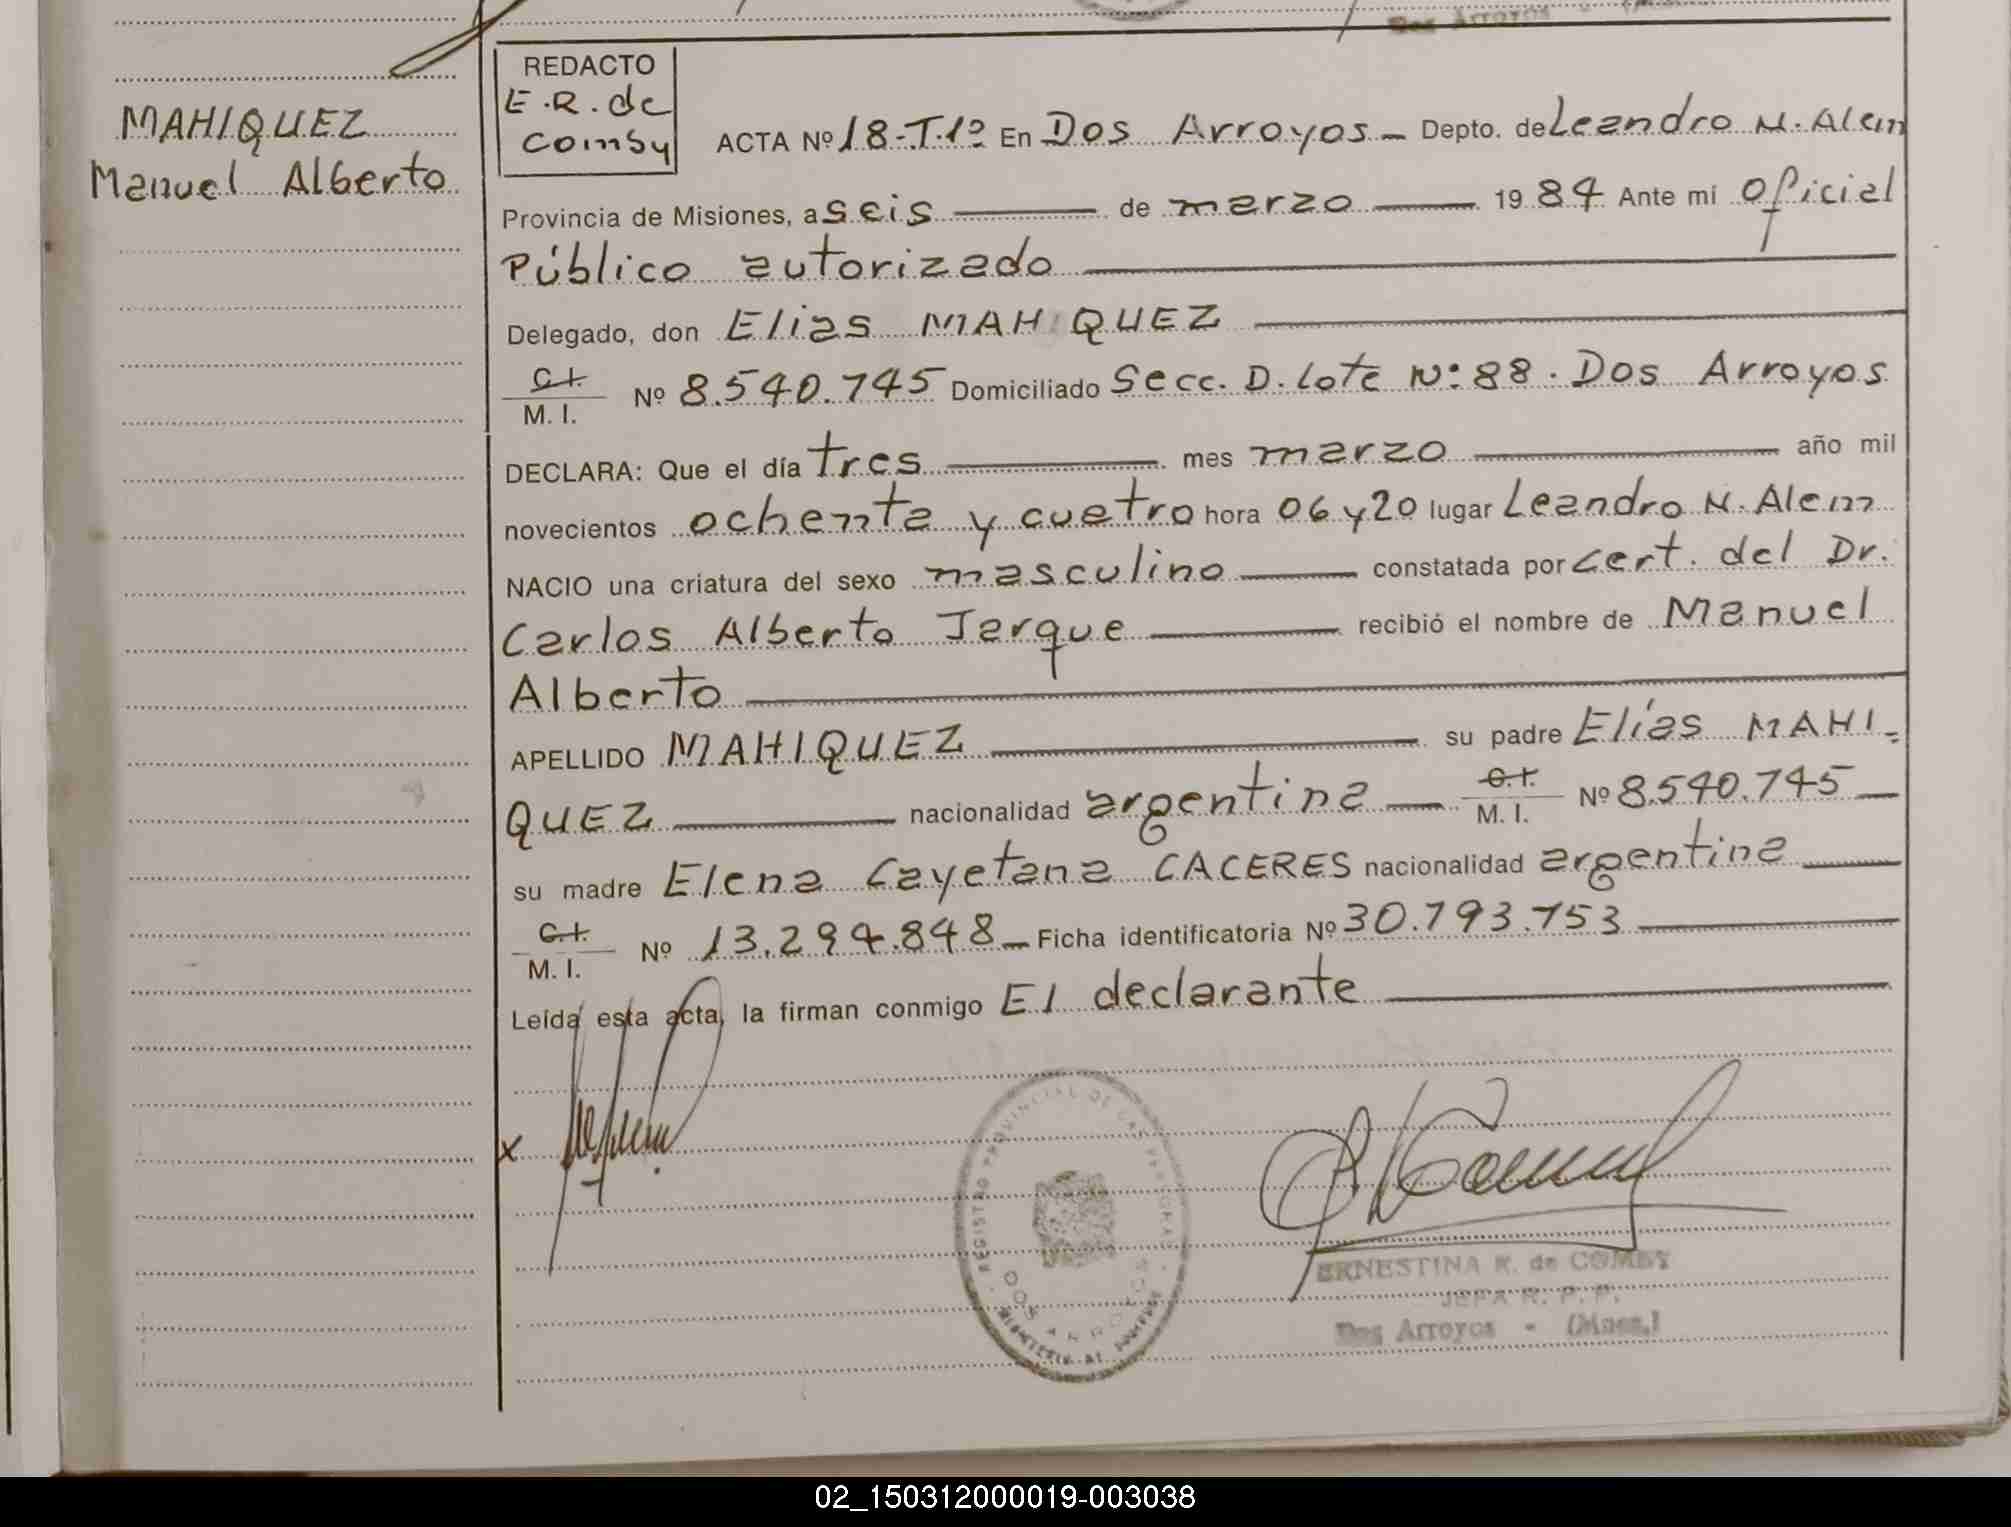 MAHIQUEZ
Manuel Alberto
REDACTO
E.R. de
Comby
ACTA Nº 18-T.1º En Dos Arroyos - Depto. de Leandro N. Alem
Provincia de Misiones, a seis de marzo 1984 Ante mí Oficial
Público autorizado
Delegado, don Elias MAHIQUEZ
C.I.
M. I. Nº 8.540.745 Domiciliado Secc. D. Lote Nº: 88. Dos Arroyos
DECLARA: Que el día tres mes marzo año mil
novecientos ochenta y cuatro hora 06 y 20 lugar Leandro N. Alem
NACIO una criatura del sexo masculino constatada por Cert. del Dr.
Carlos Alberto Jarque recibió el nombre de Manuel
Alberto
APELLIDO MAHIQUEZ su padre Elías MAHI-
QUEZ nacionalidad argentina C.I. M. I. Nº 8.540.745
su madre Elena Cayetana CACERES nacionalidad argentina
C.I.
M. I. Nº 13.294.848 - Ficha identificatoria Nº 30.793.753
Leída esta acta, la firman conmigo El declarante
x
REGISTRO PROVINCIAL DE LAS PERSONAS
DOS ARROYOS
ERNESTINA R. de COMBY
JEFA R. P. P.
Dos Arroyos - (Mnes.)
02_150312000019-003038